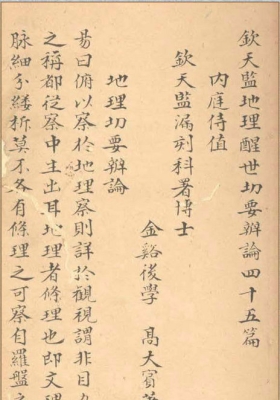 欽天監地理醒世切要辯論四十五篇
內庭侍值
欽天監漏刻科署博士
金谿後學 高大賓
地理切要辯論
昜曰俯以察於地理察則詳於觀視謂非目
之稱都從察中主出耳地理者條理也即文理
脉細分縷析莫不各有條理之可察自羅盤之